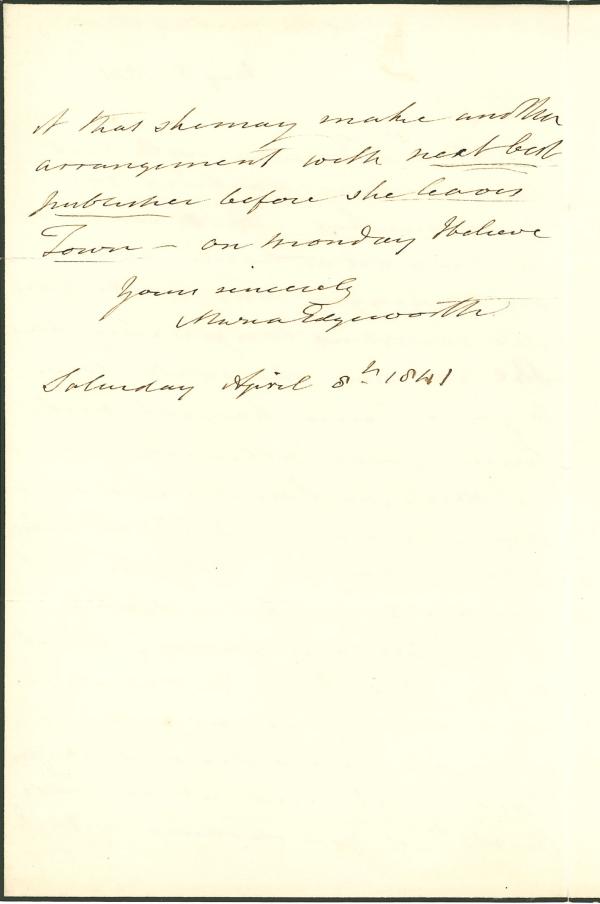 it that she may make another
arrangement with next best
publisher before she leaves
Town – on monday I believe
Yours sincerely
Maria Edgeworth
Saturday April 8th 1841